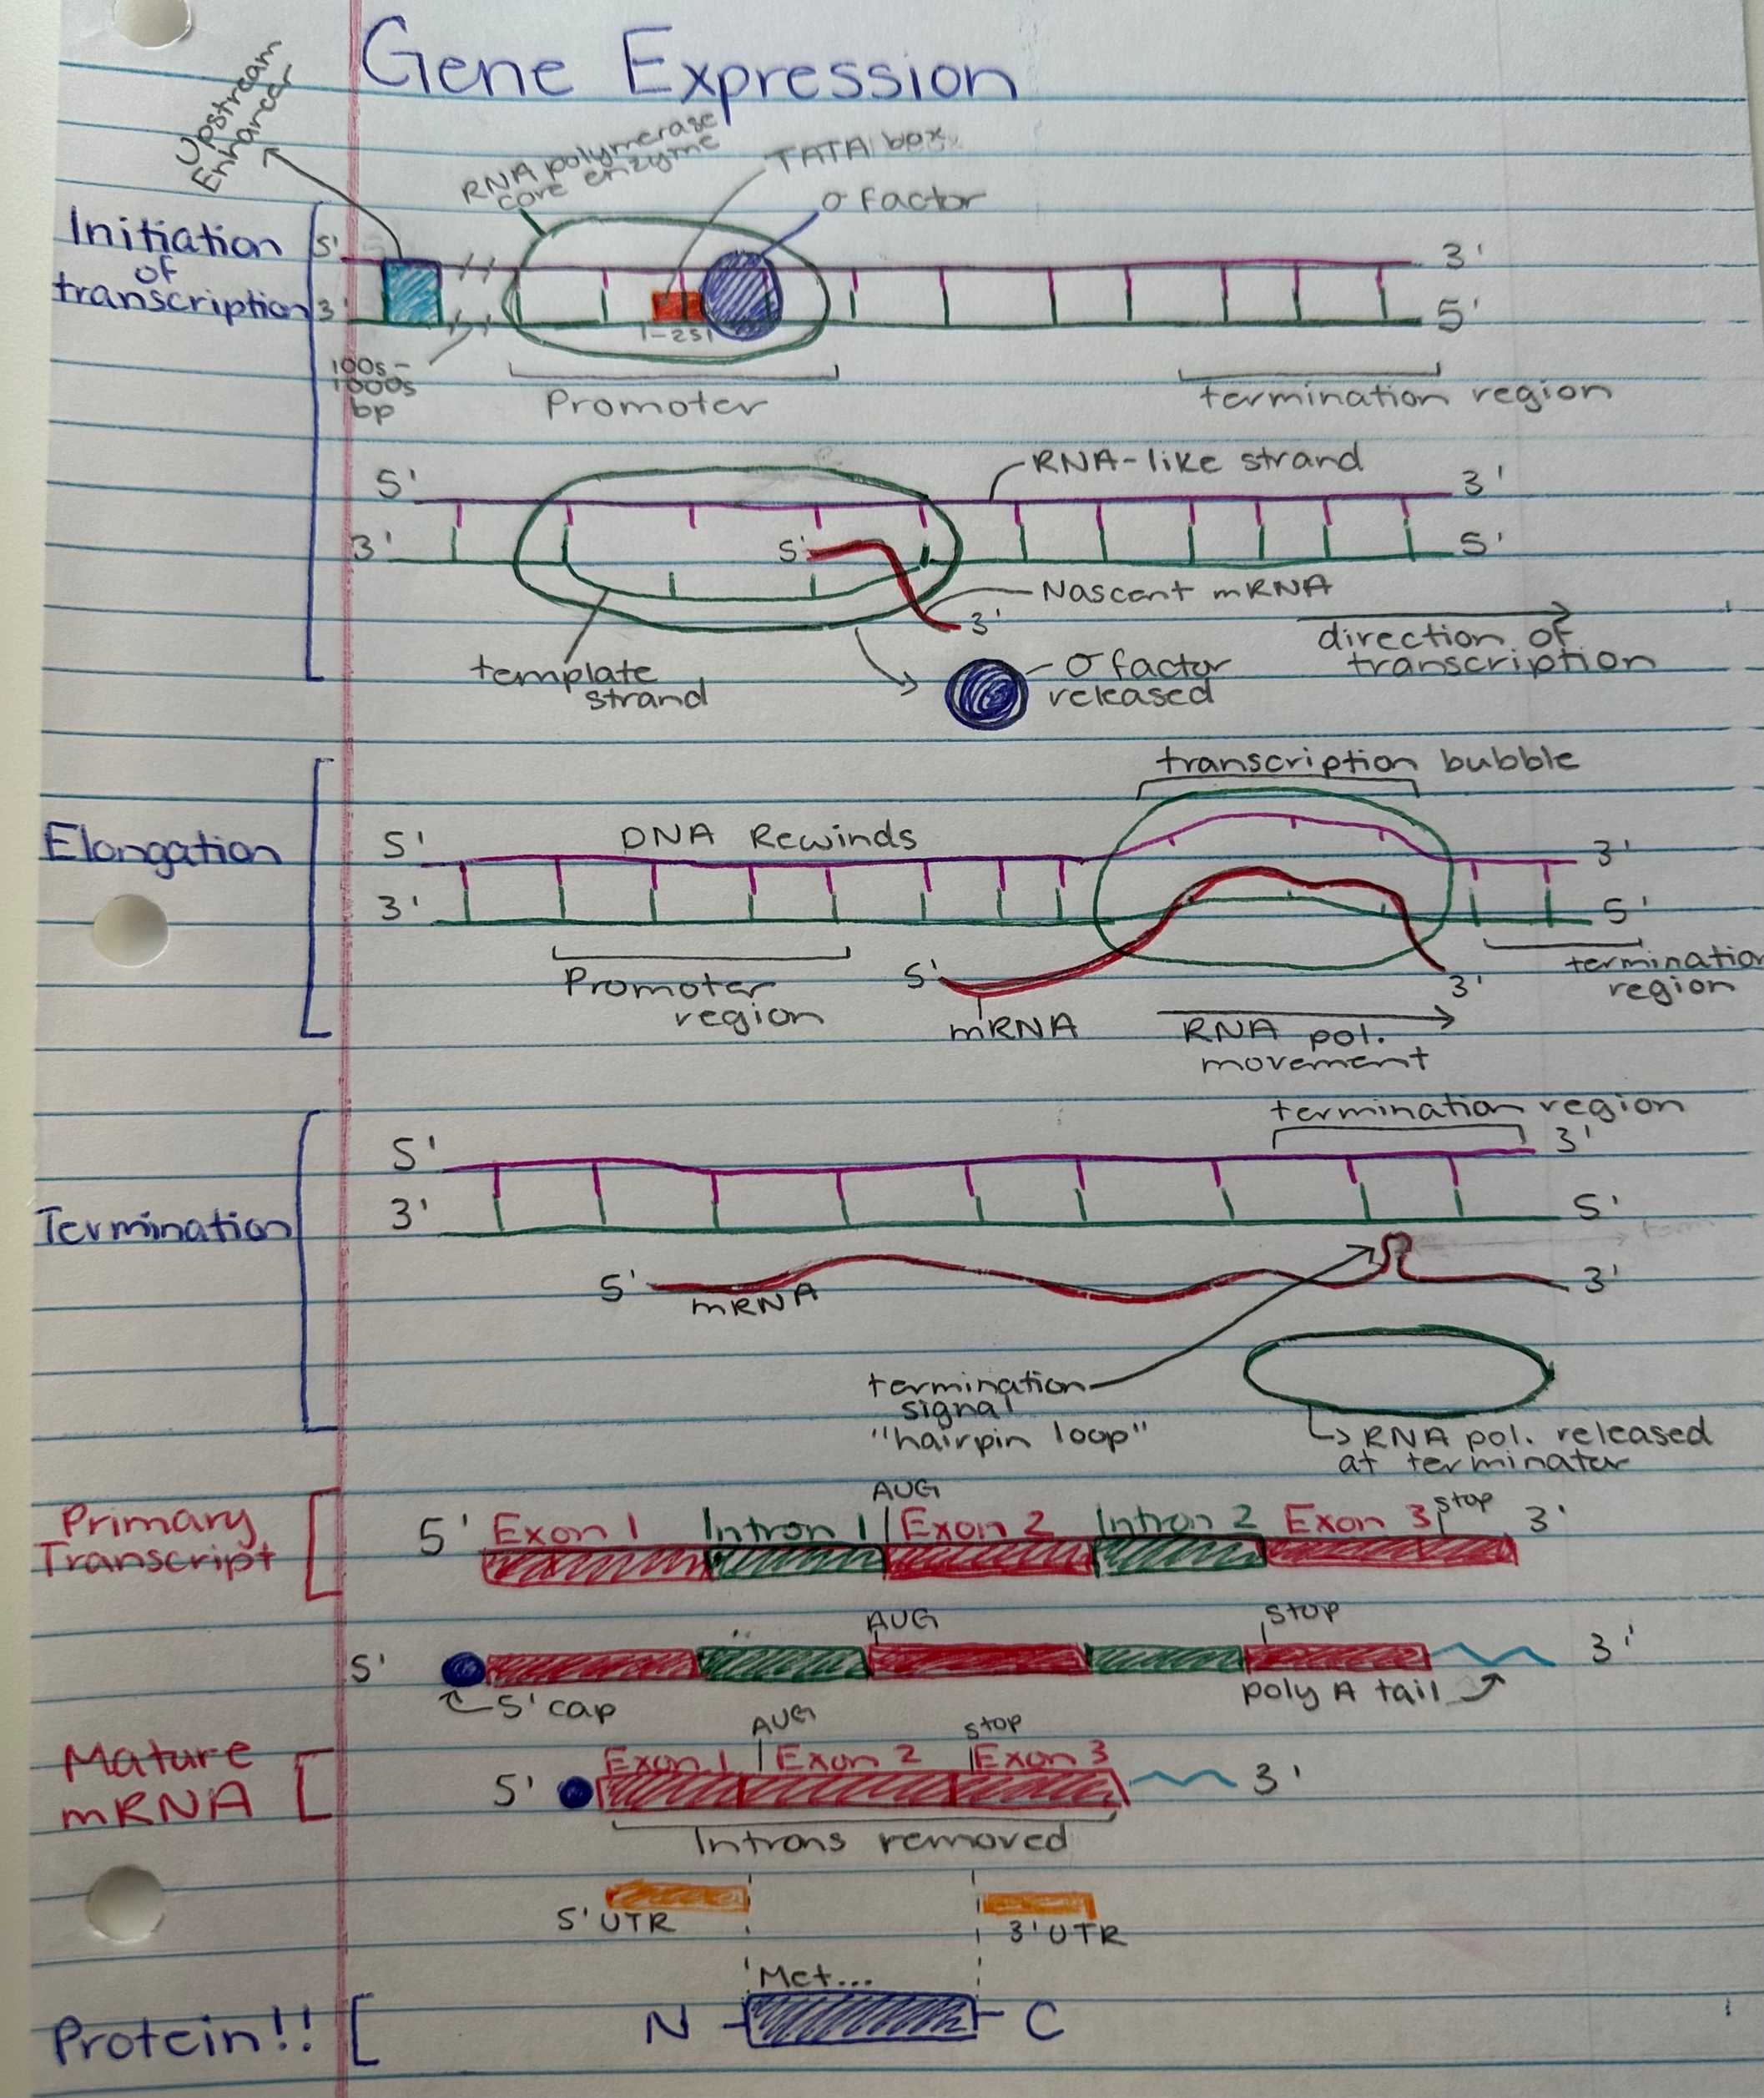 Gene Expression
Upstream
Enhancer
RNA polymerase
core enzyme
TATA box
σ factor
Initiation
of
transcription
5'
3'
3'
5'
-25
100s-
1000s
bp
Promoter
termination region
RNA-like strand
5'
3'
3'
5'
5'
Nascent mRNA
3'
direction of
transcription
template
strand
σ factor
released
transcription bubble
Elongation
DNA Rewinds
5'
3'
3'
5'
Promoter
region
5'
mRNA
3'
RNA pol.
movement
termination
region
termination region
Termination
5'
3'
3'
5'
5'
mRNA
3'
termination
signal
"hairpin loop"
RNA pol. released
at terminator
Primary
Transcript
AUG
stop
5' Exon 1 Intron 1 Exon 2 Intron 2 Exon 3 3'
AUG
stop
5'
3'
5' cap
poly A tail
Mature
mRNA
AUG
stop
Exon 1 Exon 2 Exon 3
5'
3'
Introns removed
5' UTR
3' UTR
Met...
Protein!!
N
C